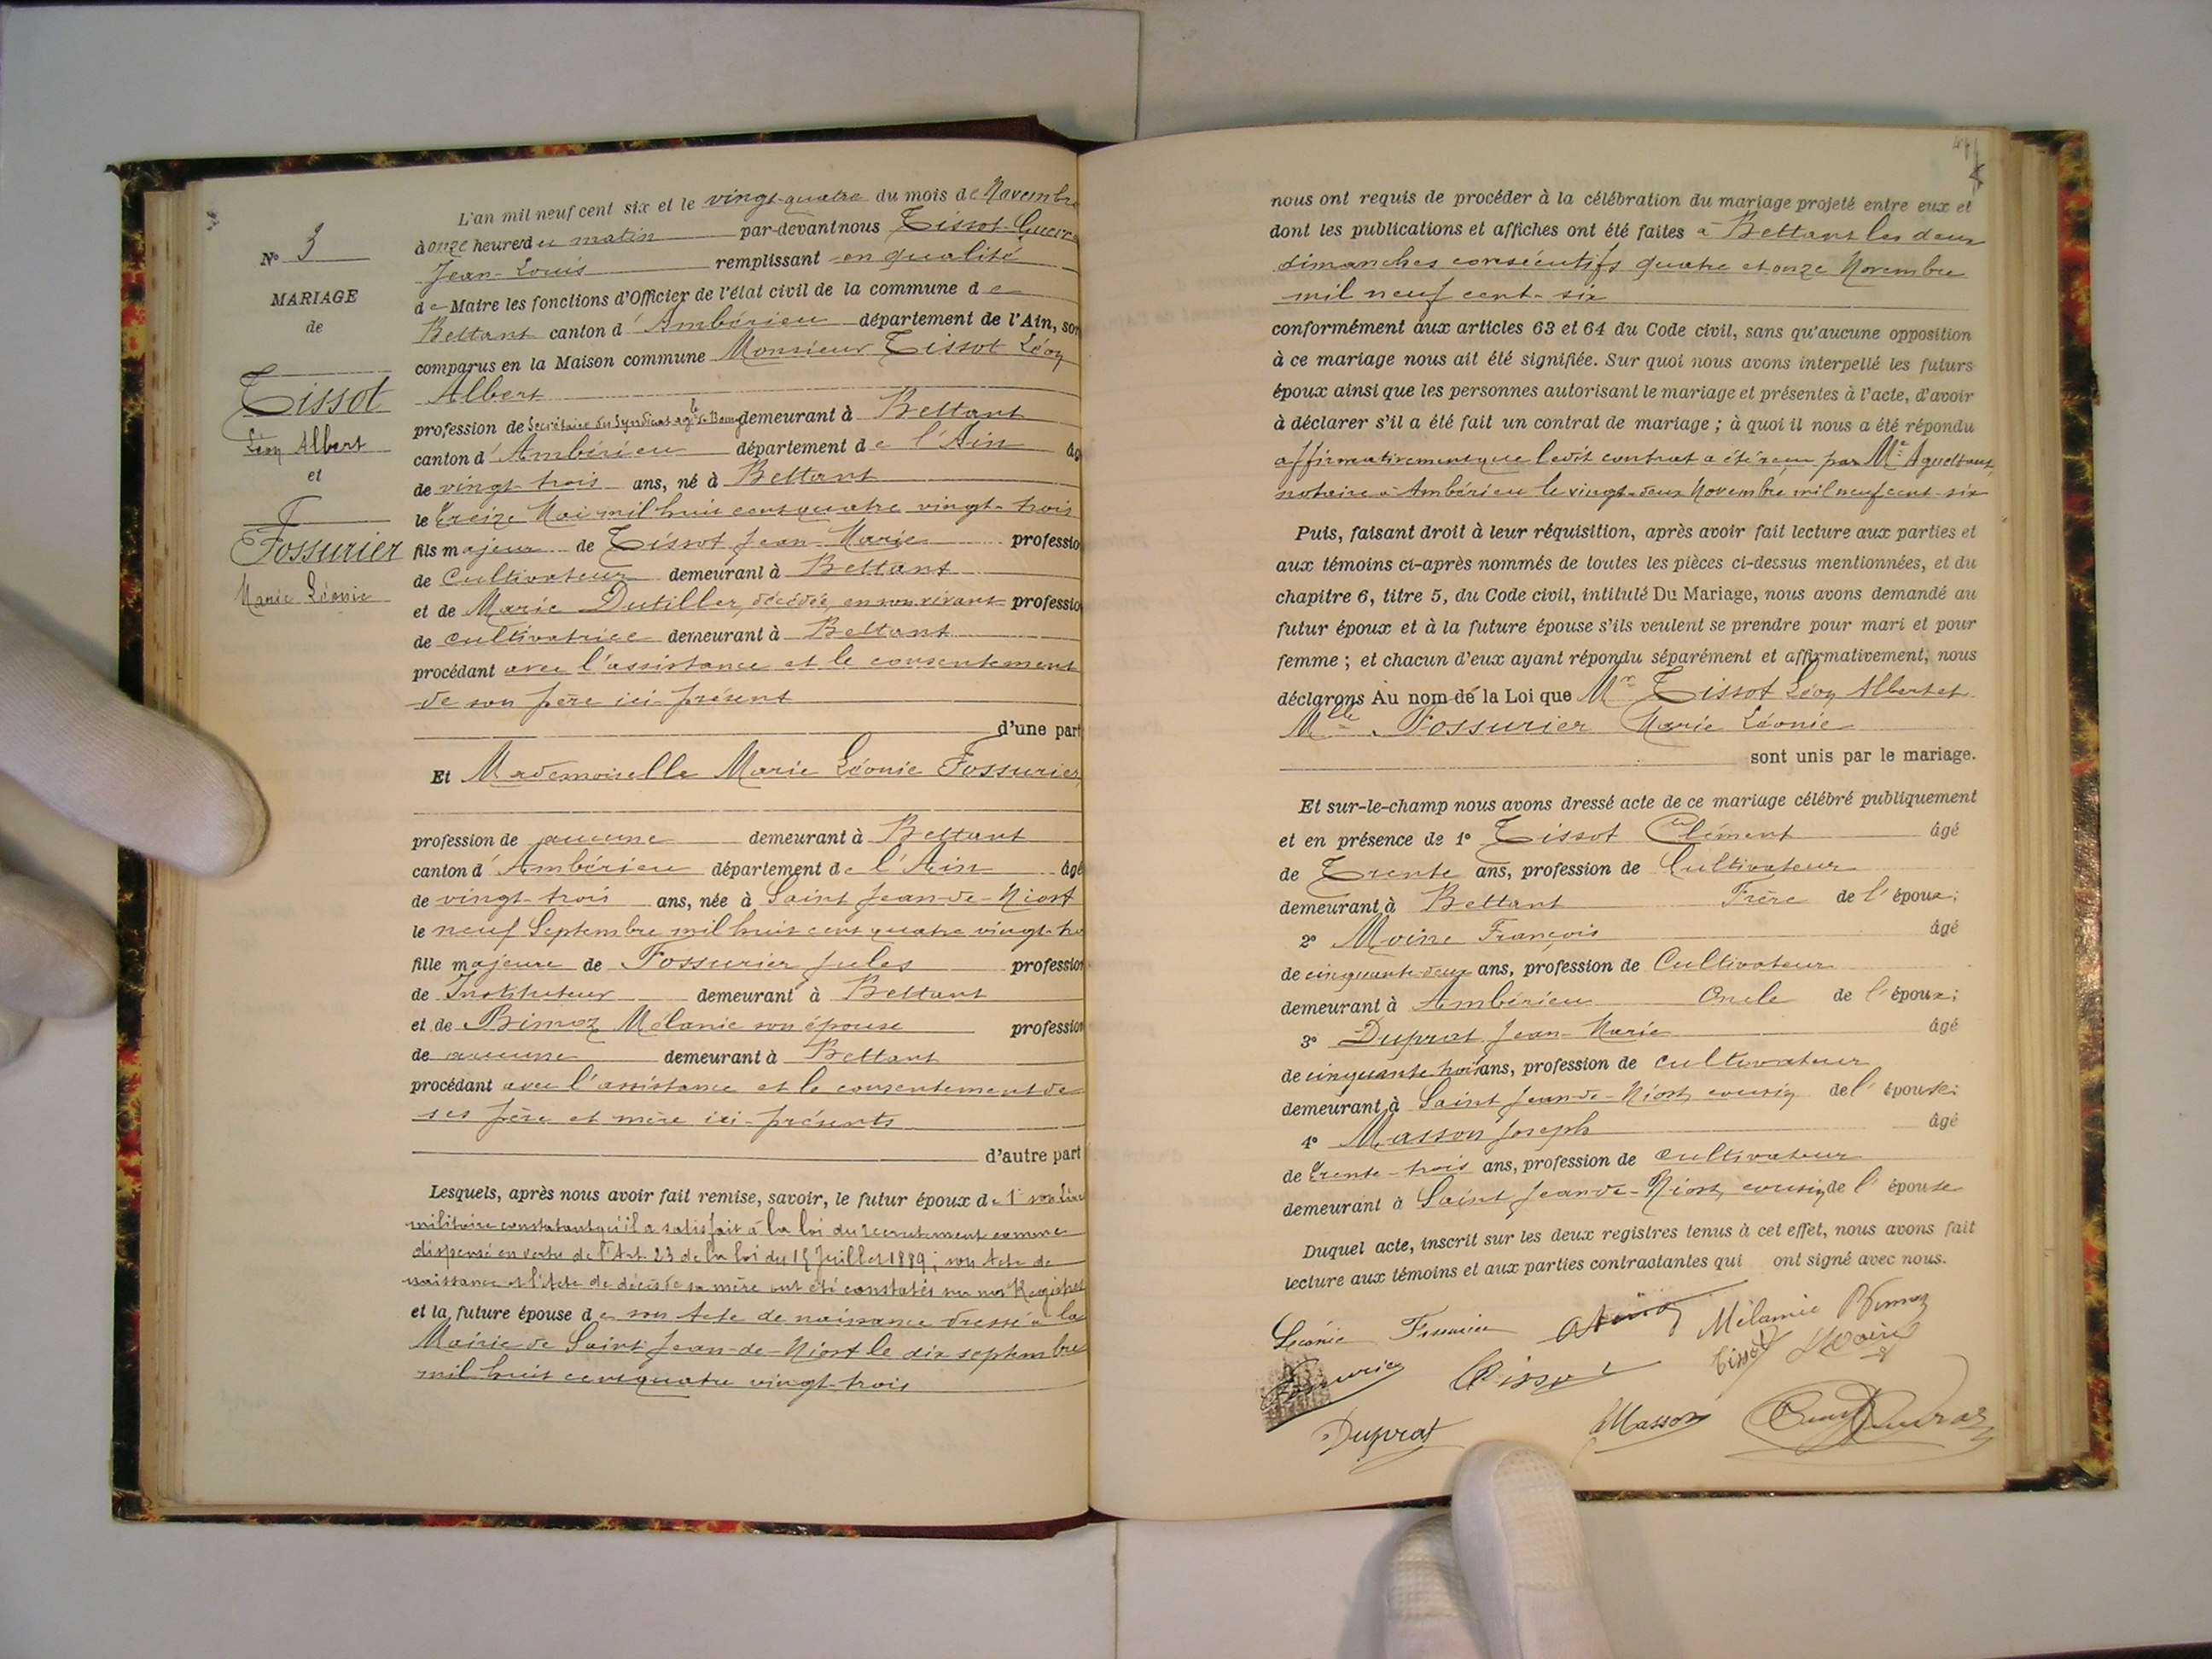 N° 3
MARIAGE
de
Tissot
Léon Albert
et
Fossurier
Marie Léonie
L'an mil neuf cent six et le vingt-quatre du mois de Novembre
à onze heures du matin par-devant nous Tissot-Guerra
Jean-Louis remplissant en qualité
de Maire les fonctions d'Officier de l'état civil de la commune de
Bettant canton d'Ambérieu département de l'Ain, son
comparus en la Maison commune Monsieur Tissot Léon
Albert
profession de Secrétaire du Syndicat demeurant à Bettant
canton d'Ambérieu département de l'Ain âg
de vingt-trois ans, né à Bettant
le treize Mai mil huit cent quatre vingt-trois
fils majeur de Tissot Jean-Marie professio
de Cultivateur demeurant à Bettant
et de Marie Dutiller, décédée, en son vivant professio
de cultivatrice demeurant à Bettant
procédant avec l'assistance et le consentement
de son père ici-présent
d'une part
Et Mademoiselle Marie Léonie Fossurier
profession de aucune demeurant à Bettant
canton d'Ambérieu département de l'Ain âgé
de vingt-trois ans, née à Saint Jean-de-Niost
le neuf Septembre mil huit cent quatre vingt-tro
fille majeure de Fossurier Jules profession
de Instituteur demeurant à Bettant
et de Bimoz Mélanie son épouse profession
de aucune demeurant à Bettant
procédant avec l'assistance et le consentement de
ses père et mère ici-présents
d'autre part
Lesquels, après nous avoir fait remise, savoir, le futur époux de 1° son
militaire constatant qu'il a satisfait à la loi du recrutement comme
dispensé en vertu de l'Art. 23 de la loi du 15 Juillet 1889; son Acte de
naissance et l'Acte de décès de sa mère ont été constatés sur nos Registres
et la future épouse de son Acte de naissance dressé à la
Mairie de Saint Jean-de-Niost le dix septembre
mil huit cent quatre vingt-trois
nous ont requis de procéder à la célébration du mariage projeté entre eux et
dont les publications et affiches ont été faites à Bettant les deux
dimanches consécutifs quatre et onze Novembre
mil neuf cent-six
conformément aux articles 63 et 64 du Code civil, sans qu'aucune opposition
à ce mariage nous ait été signifiée. Sur quoi nous avons interpellé les futurs
époux ainsi que les personnes autorisant le mariage et présentes à l'acte, d'avoir
à déclarer s'il a été fait un contrat de mariage ; à quoi il nous a été répondu
affirmativement que ledit contrat a été reçu par Me Aguettant,
notaire à Ambérieu le vingt-deux Novembre mil neuf cent-six
Puis, faisant droit à leur réquisition, après avoir fait lecture aux parties et
aux témoins ci-après nommés de toutes les pièces ci-dessus mentionnées, et du
chapitre 6, titre 5, du Code civil, intitulé Du Mariage, nous avons demandé au
futur époux et à la future épouse s'ils veulent se prendre pour mari et pour
femme ; et chacun d'eux ayant répondu séparément et affirmativement, nous
déclarons Au nom de la Loi que Mr Tissot Léon Albert et
Mlle Fossurier Marie Léonie
sont unis par le mariage.
Et sur-le-champ nous avons dressé acte de ce mariage célébré publiquement
et en présence de 1° Tissot Clément âgé
de Trente ans, profession de Cultivateur
demeurant à Bettant Frère de l'époux;
2° Moine François âgé
de cinquante-deux ans, profession de Cultivateur
demeurant à Ambérieu Oncle de l'époux;
3° Duprat Jean-Marie âgé
de cinquante-trois ans, profession de cultivateur
demeurant à Saint Jean-de-Niost, cousin de l'épouse;
4° Masson Joseph âgé
de trente-trois ans, profession de cultivateur
demeurant à Saint Jean-de-Niost, cousin de l'épouse
Duquel acte, inscrit sur les deux registres tenus à cet effet, nous avons fait
lecture aux témoins et aux parties contractantes qui ont signé avec nous.
Léonie Fossurier Mélanie Bimoz
Fossurier Tissot Tissot Moine
Duprat Masson